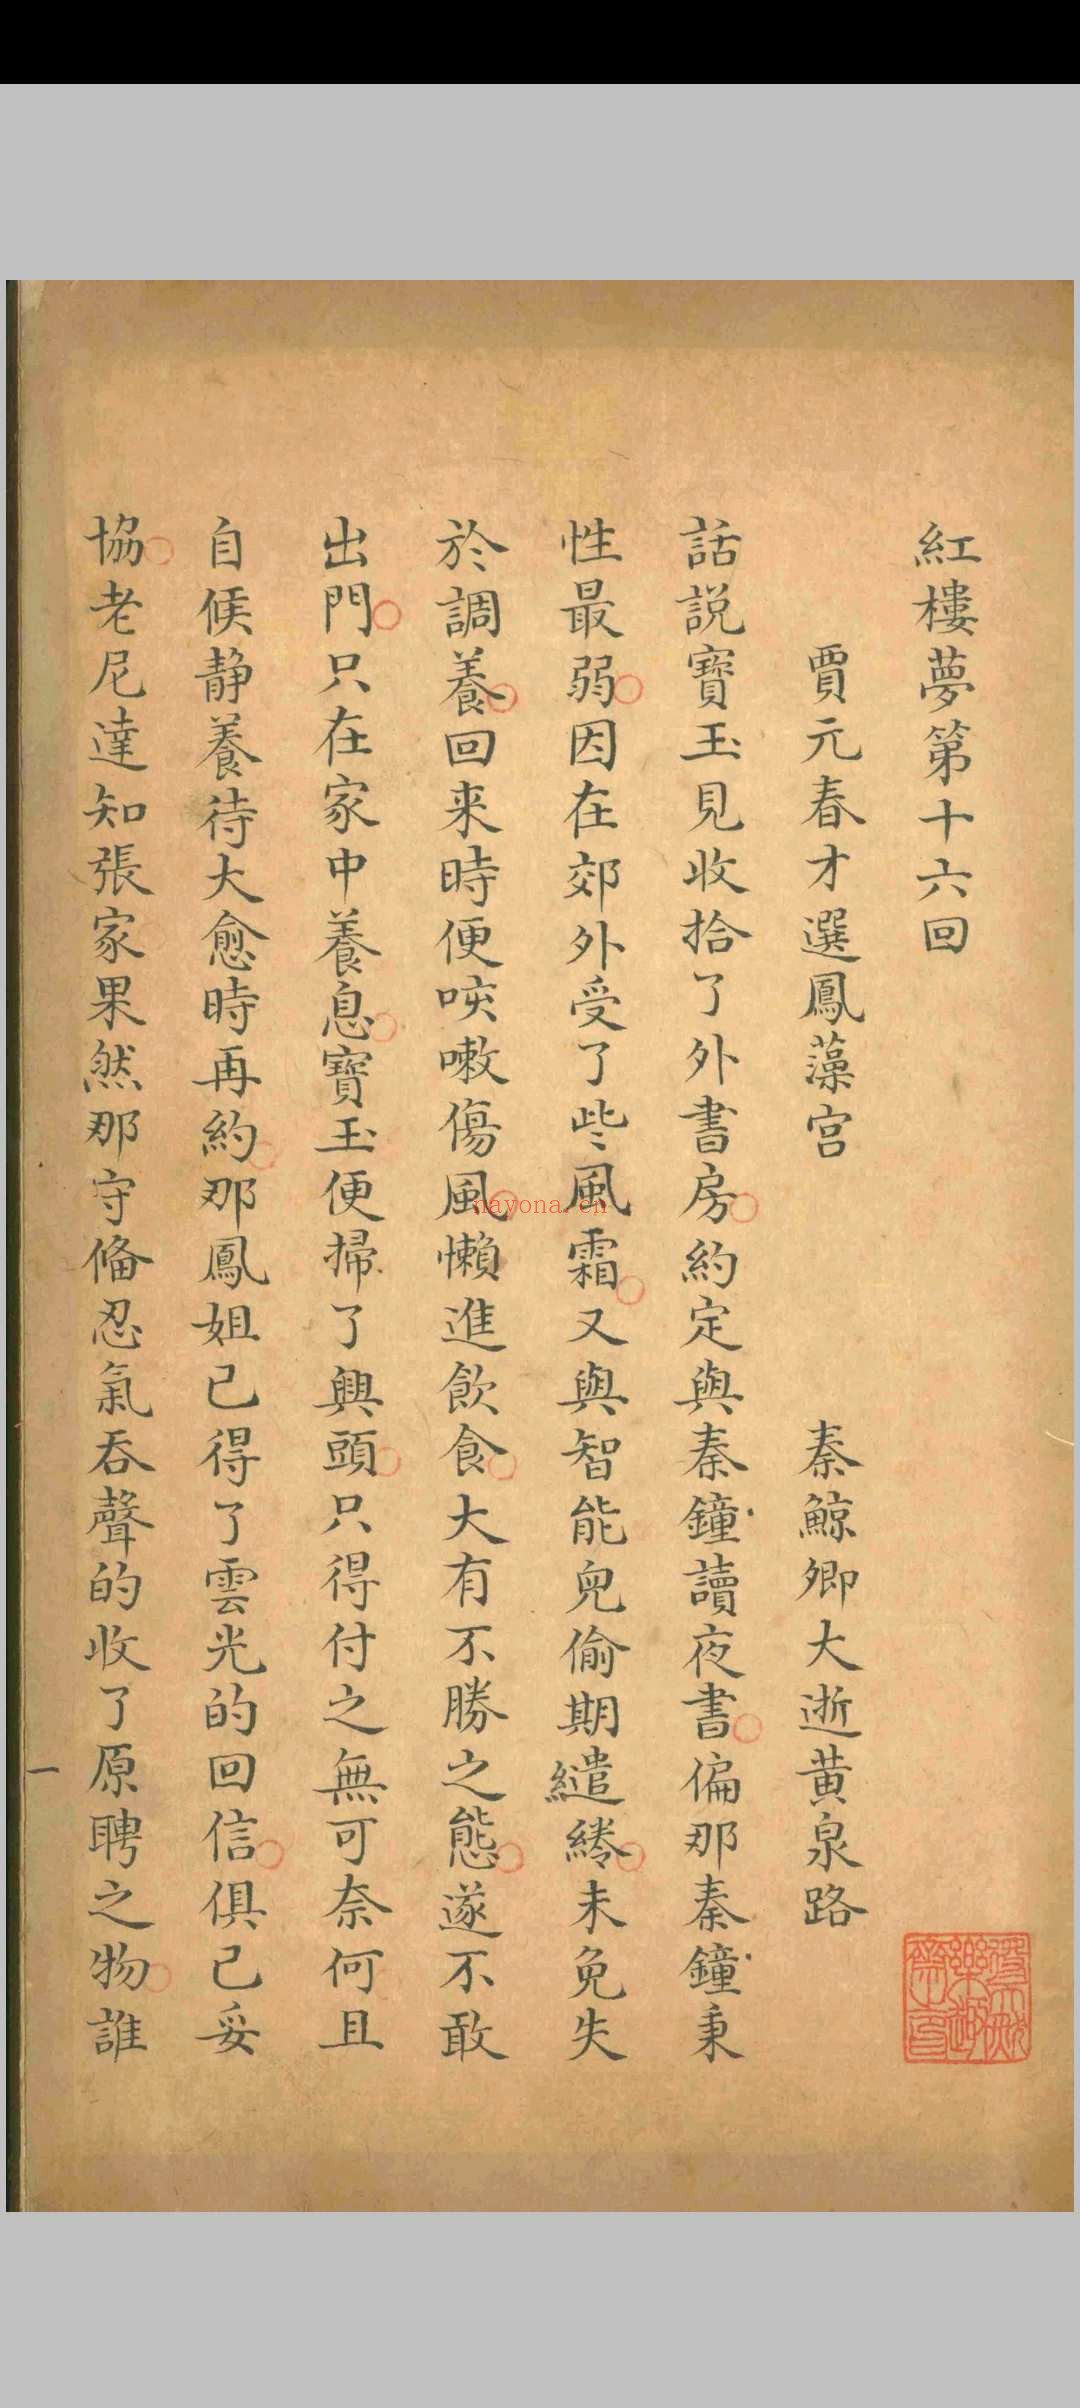 紅樓夢第十六回
賈元春才選鳳藻宮　秦鯨卿大逝黄泉路
話説寶玉見收拾了外書房約定與秦鐘讀夜書偏那秦鐘秉
性最弱因在郊外受了些風霜又與智能兒偷期繾綣未免失
於調養回来時便咳嗽傷風懶進飲食大有不勝之態遂不敢
出門只在家中養息寶玉便掃了興頭只得付之無可奈何且
自候静養待大愈時再約那鳳姐已得了雲光的回信俱已妥
協老尼達知張家果然那守俻忍氣吞聲的收了原聘之物誰
一
nayona.cn